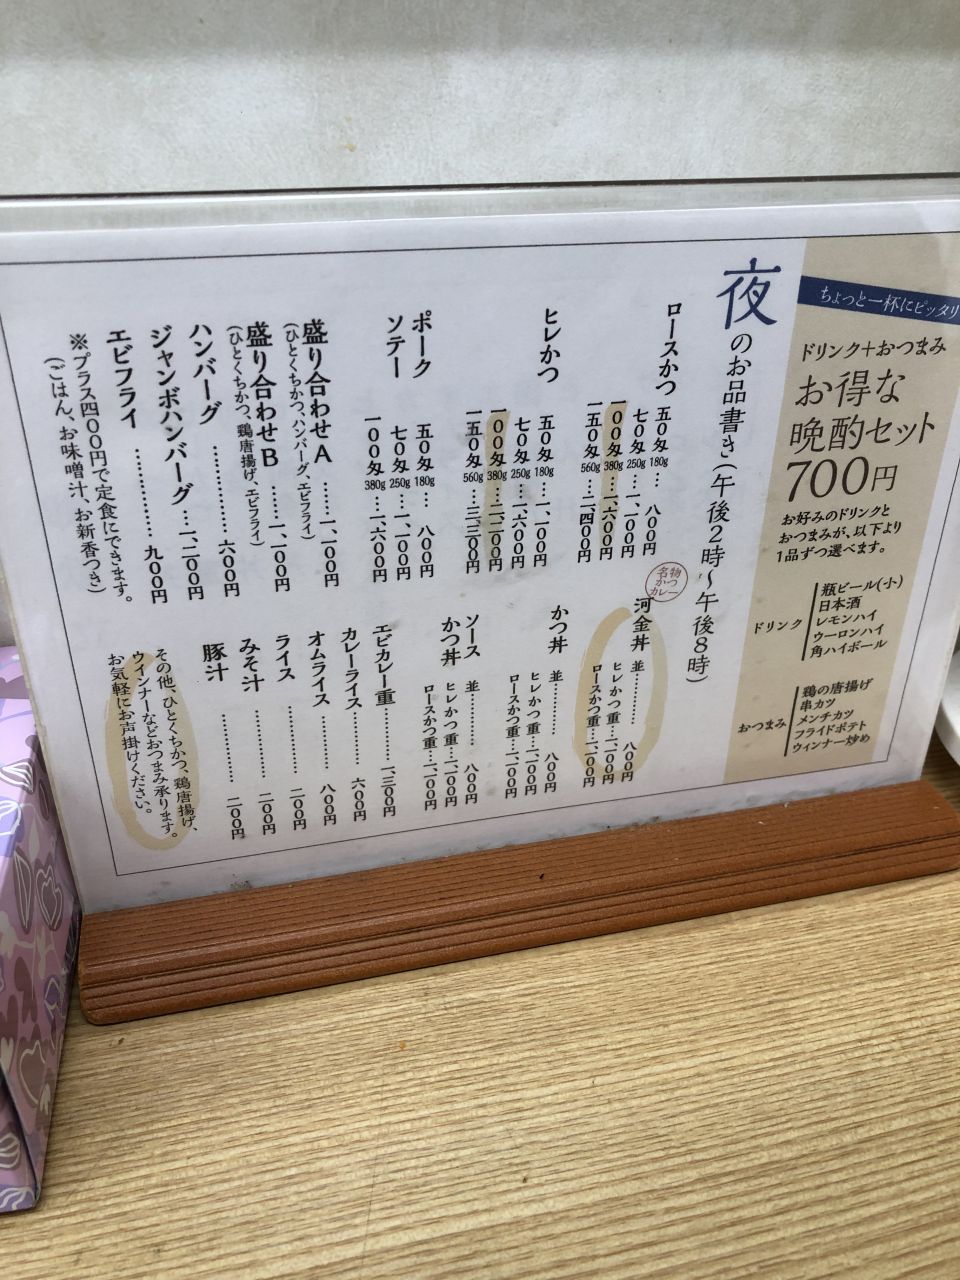 ちょっと一杯にピッタリ
ドリンク+おつまみ
お得な
晩酌セット
700円
お好みのドリンクと
おつまみが、以下より
1品ずつ選べます。
ドリンク
瓶ビール(小)
日本酒
レモンハイ
ウーロンハイ
角ハイボール
おつまみ
鶏の唐揚げ
串カツ
メンチカツ
フライドポテト
ウィンナー炒め
夜のお品書き(午後2時〜午後8時)
ロースかつ
五〇匁 180g … 八〇〇円
七〇匁 250g … 一、一〇〇円
一〇〇匁 380g … 一、六〇〇円
一五〇匁 560g … 二、四〇〇円
ヒレかつ
五〇匁 180g … 一、一〇〇円
七〇匁 250g … 一、六〇〇円
一〇〇匁 380g … 二、二〇〇円
一五〇匁 560g … 三、三〇〇円
ポーク
ソテー
五〇匁 180g … 八〇〇円
七〇匁 250g … 一、一〇〇円
一〇〇匁 380g … 一、六〇〇円
盛り合わせA ……… 一、一〇〇円
(ひとくちかつ、ハンバーグ、エビフライ)
盛り合わせB ……… 一、一〇〇円
(ひとくちかつ、鶏唐揚げ、エビフライ)
ハンバーグ ……… 六〇〇円
ジャンボハンバーグ … 一、二〇〇円
エビフライ ……… 九〇〇円
※プラス四〇〇円で定食にできます。
(ごはん、お味噌汁、お新香つき)
名物
かつ
カレー
河金丼
並 ……… 八〇〇円
ヒレかつ重 … 一、〇〇〇円
ロースかつ重 … 一、〇〇〇円
かつ丼
並 ……… 八〇〇円
ヒレかつ重 … 一、二〇〇円
ロースかつ重 … 一、二〇〇円
ソース
かつ丼
並 ……… 八〇〇円
ヒレかつ重 … 一、二〇〇円
ロースかつ重 … 一、二〇〇円
エビカレー重 ……… 一、三〇〇円
カレーライス ……… 六〇〇円
オムライス ……… 八〇〇円
ライス ……… 二〇〇円
みそ汁 ……… 二〇〇円
豚汁 ……… 二〇〇円
その他、ひとくちかつ、鶏唐揚げ、
ウインナーなどおつまみ承ります。
お気軽にお声掛けください。